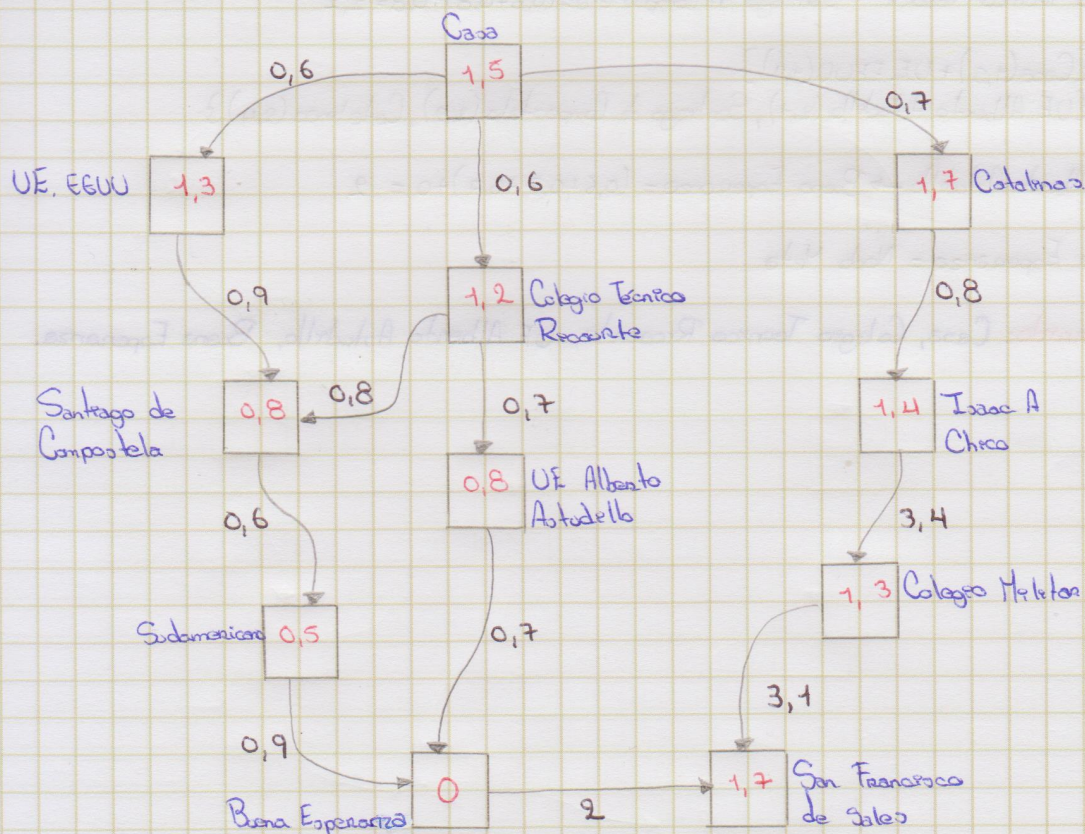 Casa
1,5
0,6
0,7
UE. EEUU
1,3
0,6
1,7
Catalinas
0,9
1,2
Colegio Técnico
Ricaurte
0,8
Santiago de
Compostela
0,8
0,8
0,7
1,4
Isaac A
Chico
0,8
UE Alberto
Astudillo
0,6
3,4
1,3
Colegio Militar
Sudamericano
0,5
0,7
3,1
0,9
Buena Esperanza
0
2
1,7
San Francisco
de Sales